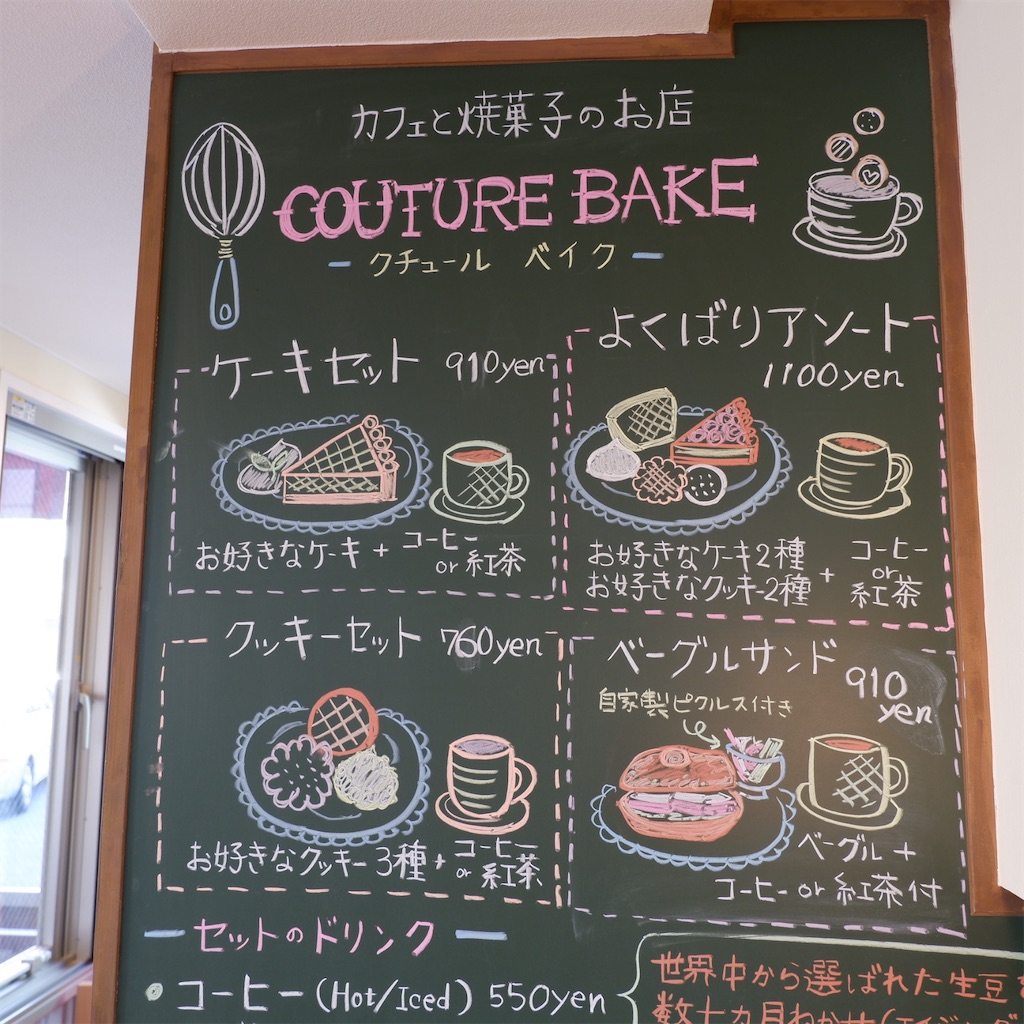 カフェと焼菓子のお店
COUTURE BAKE
クチュール ベイク
ケーキセット 910yen
お好きなケーキ + コーヒー
or 紅茶
よくばりアソート
1100yen
お好きなケーキ2種
お好きなクッキー2種
+ コーヒー
or
紅茶
クッキーセット 760yen
お好きなクッキー3種 + コーヒー
or 紅茶
ベーグルサンド 910
yen
自家製ピクルス付き
ベーグル +
コーヒー or 紅茶付
セットのドリンク
コーヒー (Hot/Iced) 550yen
世界中から選ばれた生豆
数十カ月ねかせ(エイジング